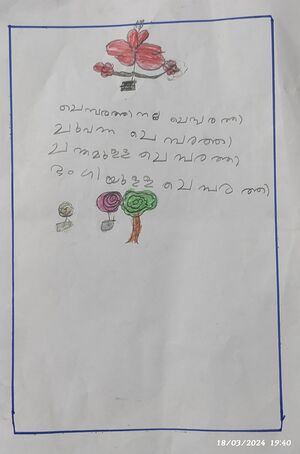 ചെമ്പരത്തി നല്ല ചെമ്പരത്തി
ചുവന്ന ചെമ്പരത്തി
ചന്തമുള്ള ചെമ്പരത്തി
ഭംഗിയുള്ള ചെമ്പരത്തി
18/03/2024 19:40